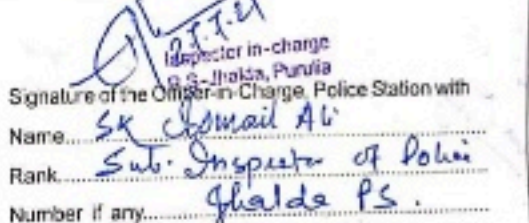 27.7.21
Inspector in-charge
P.S-Jhalda, Purulia
Signature of the Officer-in-Charge, Police Station with
Name.... SK Ismail Ali
Rank.... Sub. Inspector of Police
Number if any.... Jhalda PS.